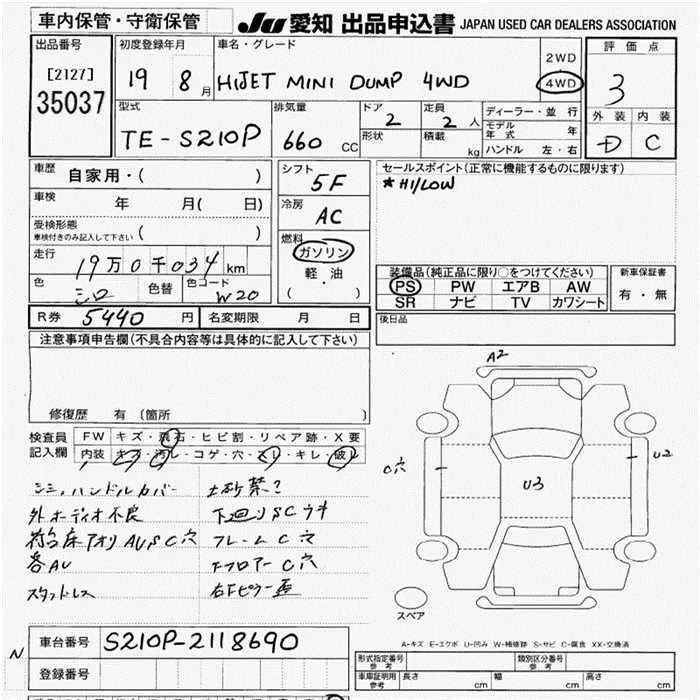 車内保管・守衛保管
JU 愛知 出品申込書 JAPAN USED CAR DEALERS ASSOCIATION
出品番号
[2127]
35037
初度登録年月
19 8 月
車名・グレード
HIJET MINI DUMP 4WD
2WD
4WD
評価点
3
外装 内装
D C
型式
TE-S210P
排気量
660 CC
ドア
2
形状
定員
2 人
積載
kg
ディーラー・並行
モデル年式 年
ハンドル 左・右
車歴 自家用・( )
車検 年 月( 日)
受検形態
車検付きのみ記入して下さい ( )
走行
19万0千034 km
色
シロ
色替
色コード
W20
シフト
5F
冷房
AC
燃料
ガソリン
軽・油
( )
セールスポイント(正常に機能するものに限ります)
★HI/LOW
装備品(純正品に限り○をつけてください)
PS PW エアB AW
SR ナビ TV カワシート
新車保証書
有・無
R券 5440 円 名変期限 月 日
後日品
注意事項申告欄(不具合内容等は具体的に記入して下さい)
修復歴 有 〔箇所 〕
検査員記入欄
FW キズ・飛石・ヒビ割・リペア跡・X要
内装 キズ・汚レ・コゲ・穴・スレ・キレ・破レ
シミ,ハンドルカバー
土砂禁?
外オーディオ不良
下廻りSCウキ
アオリ AUSC穴
フレームC穴
各AU
下フロアーC穴
スタッドレス
右Fピラー
A2
C穴
U2
U3
スペア
A-キズ E-エクボ U-凹み W-補修跡 S-サビ C-腐食 XX-交換済
N
車台番号 S210P-2118690
登録番号
形式指定番号 参考
類別区分番号 参考
車庫証明用 参考
長さ cm 幅 cm 高さ cm